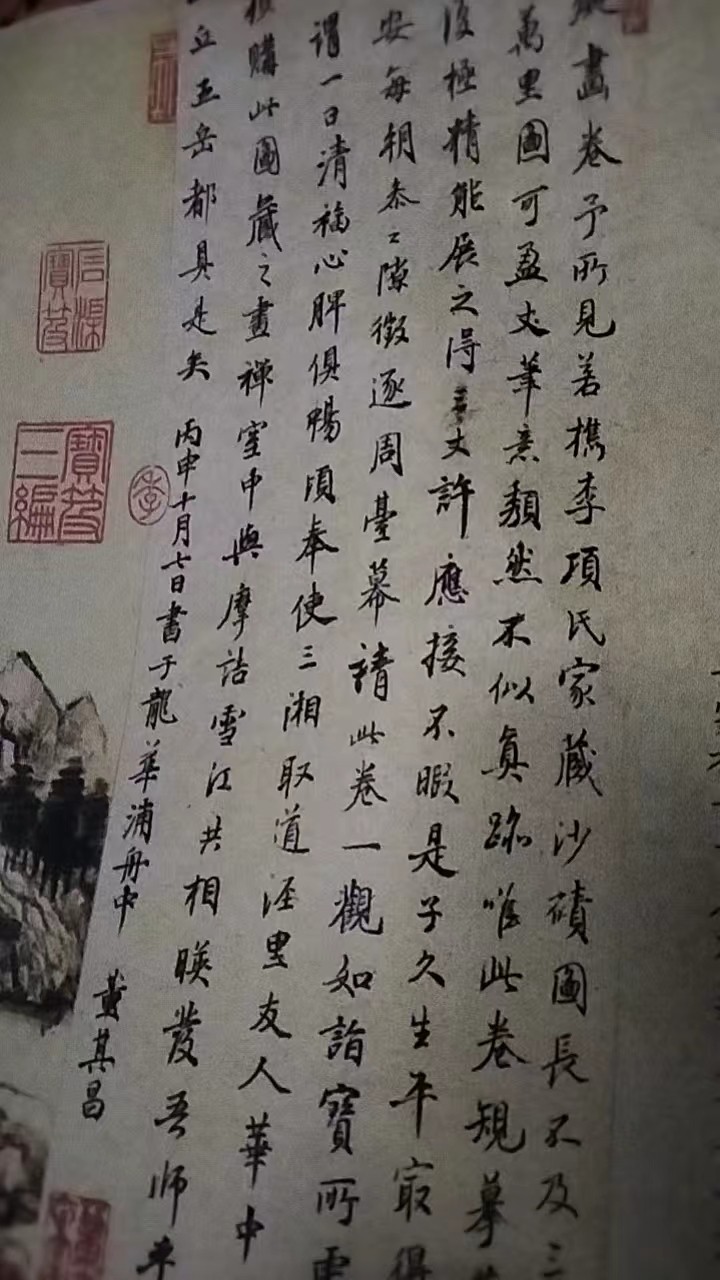 畫卷予所見若檇李項氏家藏沙磧圖長不及三
萬里圖可盈丈筆意頹然不似真跡唯此卷規摹
復極精能展之得三丈許應接不暇是子久生平最得
安每朝參之隙徵逐周臺幕請此卷一觀如詣寶所
謂一日清福心脾俱暢頃奉使三湘取道涇里友人華中
購此圖藏之畫禪室中與摩詰雪江共相映發吾師乎
丘五岳都具是矣 丙申十月七日書于龍華浦舟中 董其昌
季
石渠寶笈
寶笈三編